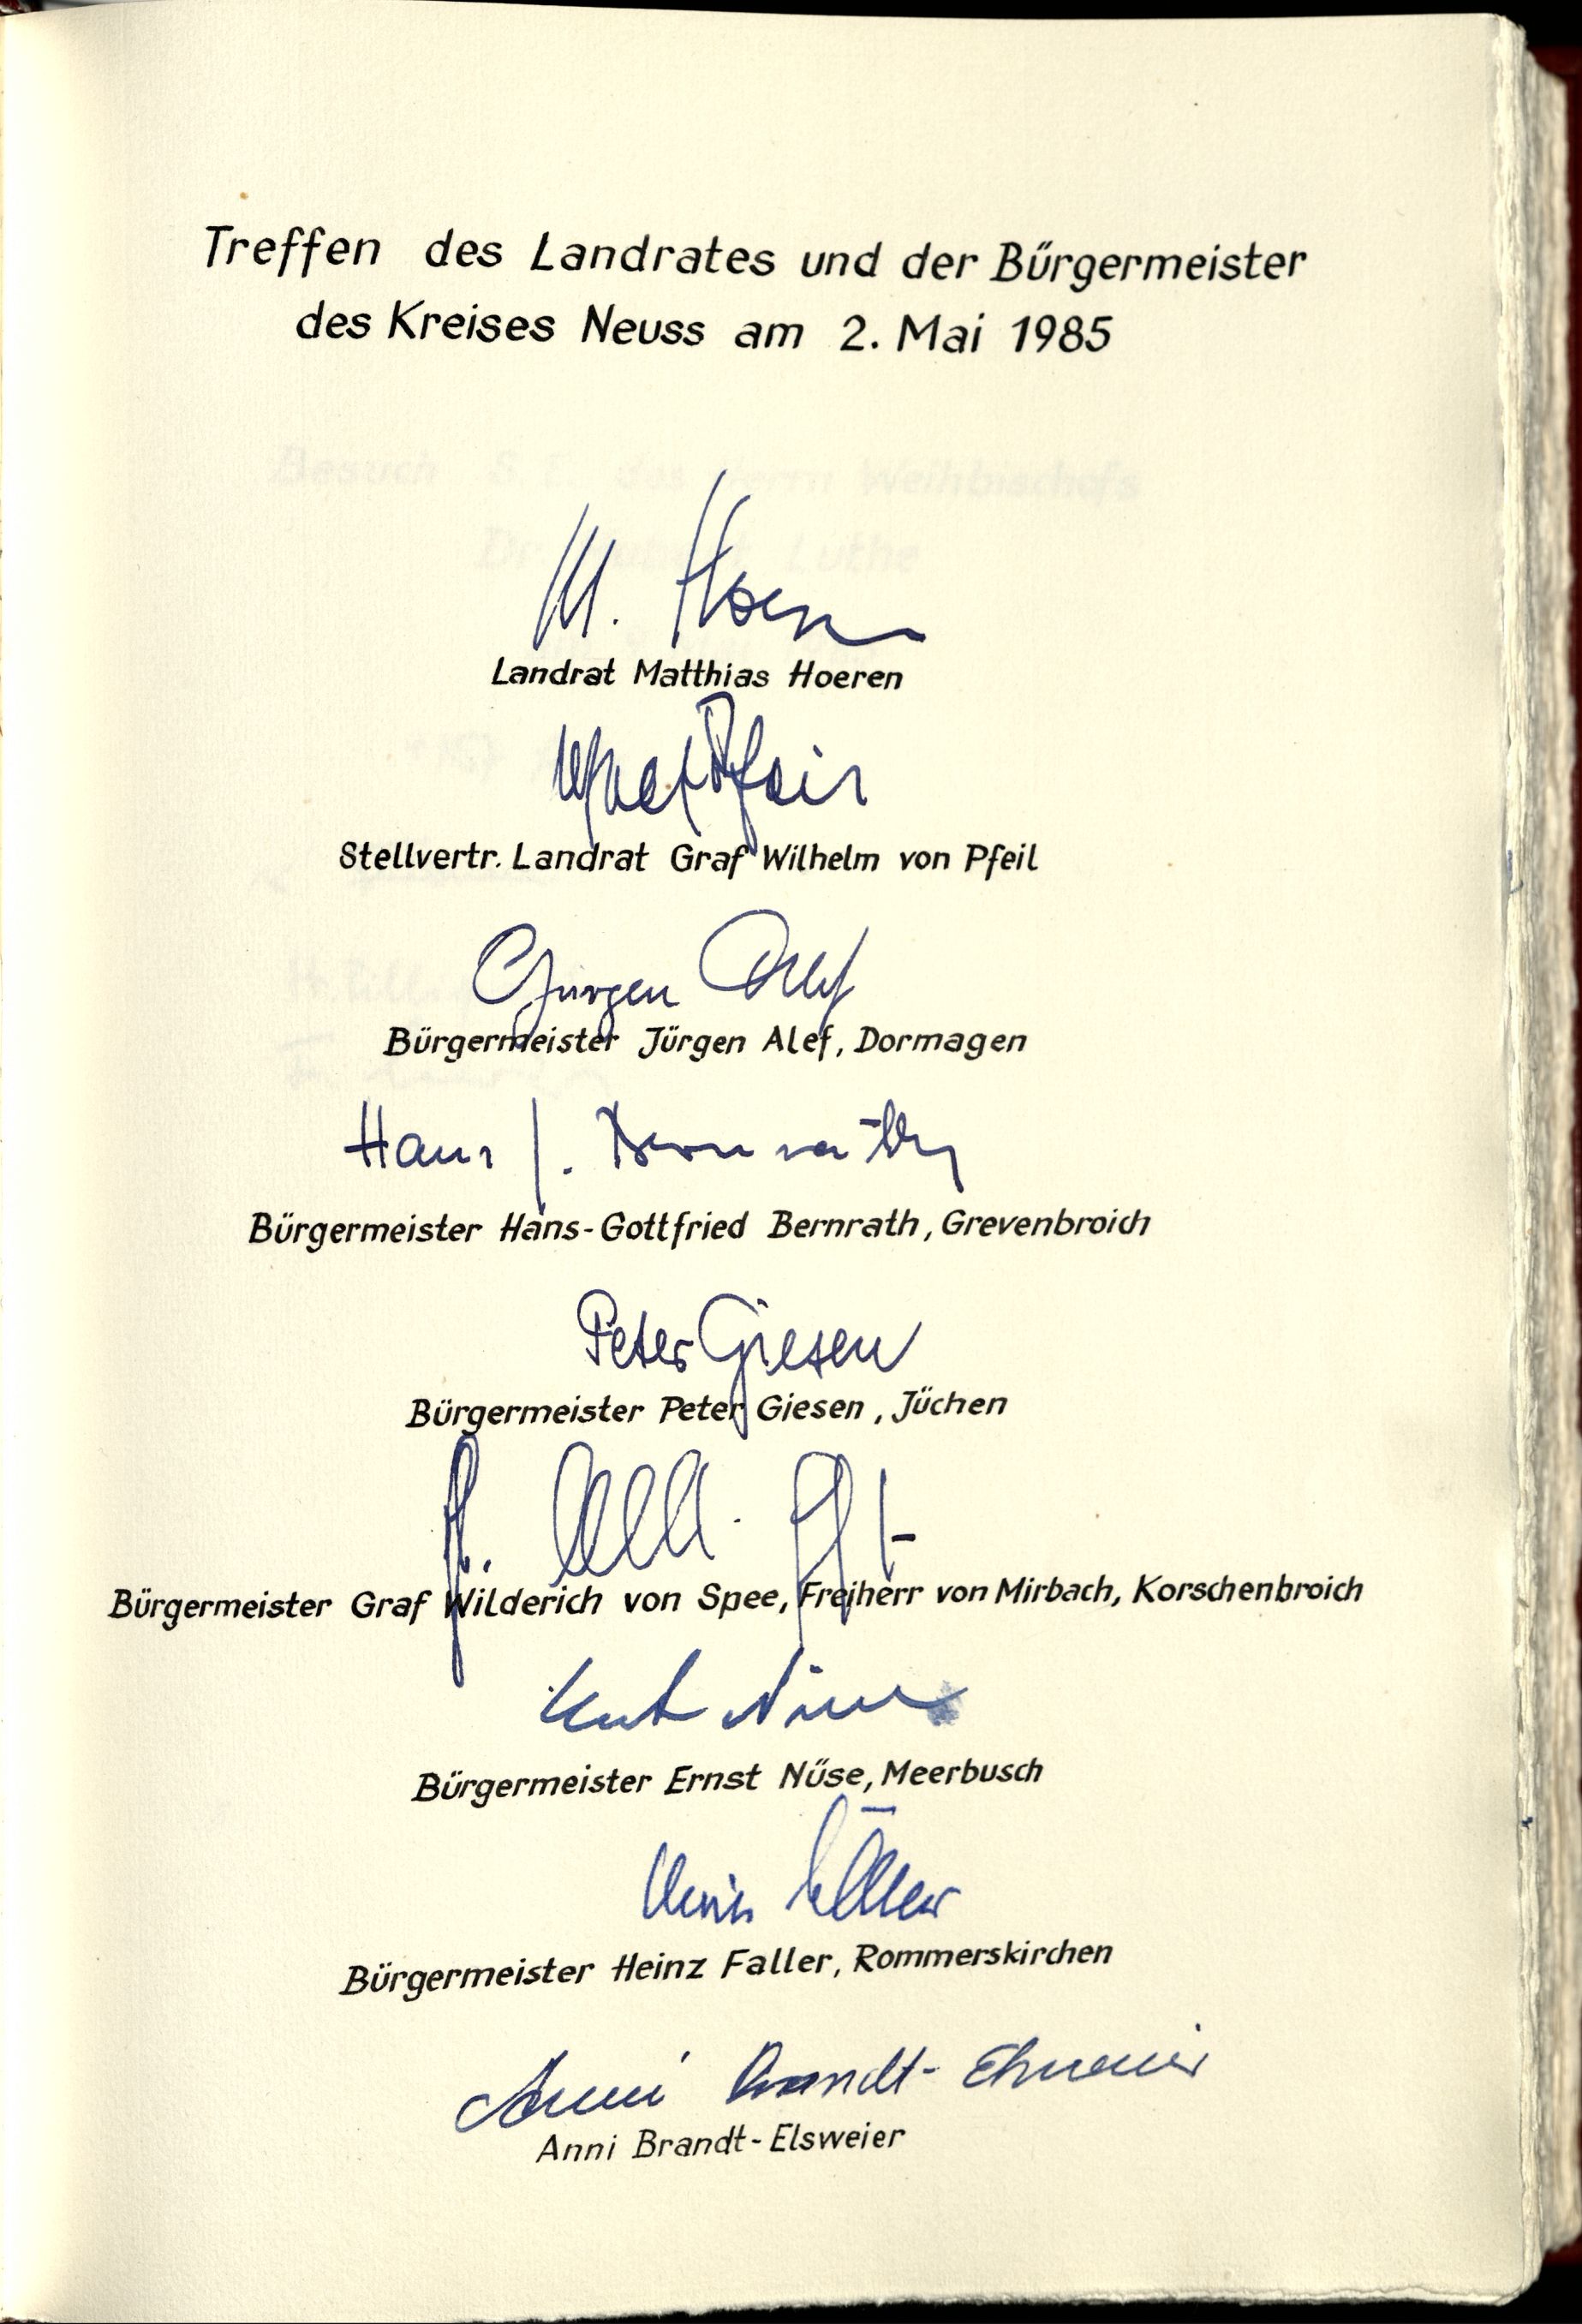 Treffen des Landrates und der Bürgermeister
des Kreises Neuss am 2. Mai 1985
M. Hoeren
Landrat Matthias Hoeren
Stellvertr. Landrat Graf Wilhelm von Pfeil
Jürgen Alef
Bürgermeister Jürgen Alef, Dormagen
Hans J. Bernrath
Bürgermeister Hans-Gottfried Bernrath, Grevenbroich
Peter Giesen
Bürgermeister Peter Giesen, Jüchen
Bürgermeister Graf Wilderich von Spee, Freiherr von Mirbach, Korschenbroich
Bürgermeister Ernst Nüse, Meerbusch
Heinz Faller
Bürgermeister Heinz Faller, Rommerskirchen
Anni Brandt-Elsweier
Anni Brandt-Elsweier